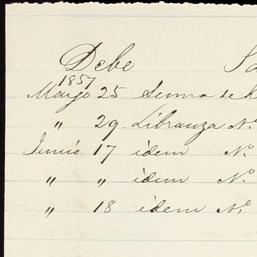 Debe
1857
Marzo 25 Suma de
" 29 Libranza Nº
Junio 17 idem Nº
" " idem Nº
" 18 idem Nº